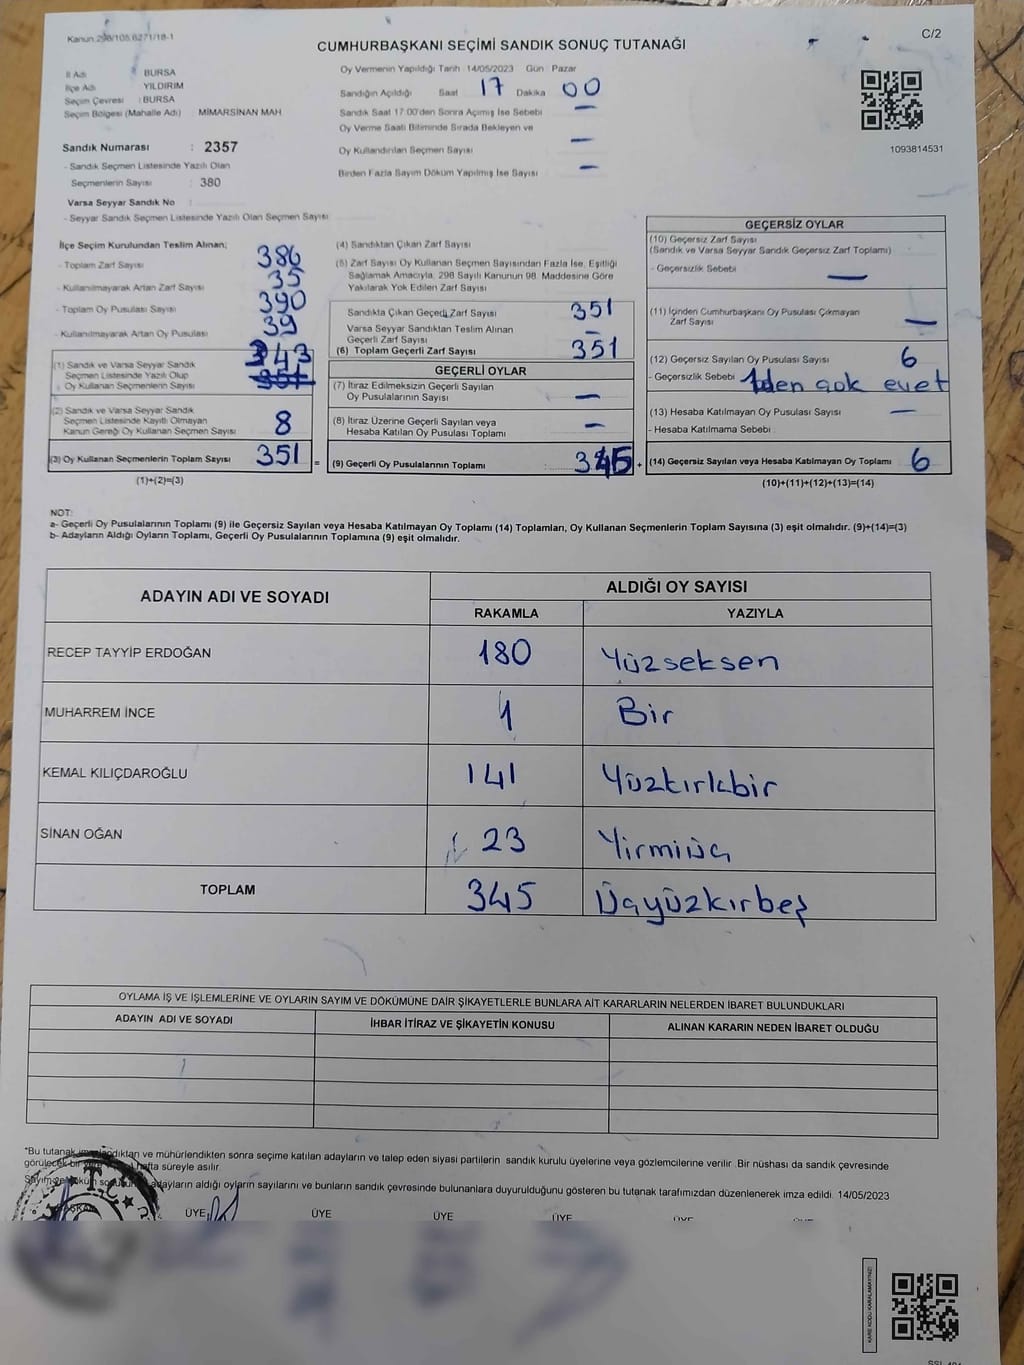 Kanun:298/105,6271/18-1
C/2
CUMHURBAŞKANI SEÇİMİ SANDIK SONUÇ TUTANAĞI
İl Adı : BURSA
İlçe Adı : YILDIRIM
Seçim Çevresi : BURSA
Seçim Bölgesi (Mahalle Adı) : MİMARSİNAN MAH
Sandık Numarası : 2357
- Sandık Seçmen Listesinde Yazılı Olan
Seçmenlerin Sayısı : 380
Varsa Seyyar Sandık No :
- Seyyar Sandık Seçmen Listesinde Yazılı Olan Seçmen Sayısı
Oy Vermenin Yapıldığı Tarih 14/05/2023 Gün Pazar
Sandığın Açıldığı Saat 17 Dakika 00
Sandık Saat 17:00'den Sonra Açımış İse Sebebi —
Oy Verme Saati Bitiminde Sırada Bekleyen ve
Oy Kullandırılan Seçmen Sayısı —
Birden Fazla Sayım Döküm Yapılmış İse Sayısı —
1093814531
İlçe Seçim Kurulundan Teslim Alınan;
- Toplam Zarf Sayısı 386
- Kullanılmayarak Artan Zarf Sayısı 35
- Toplam Oy Pusulası Sayısı 390
- Kullanılmayarak Artan Oy Pusulası 39
(1) Sandık ve Varsa Seyyar Sandık
Seçmen Listesinde Yazılı Olup
Oy Kullanan Seçmenlerin Sayısı 343
(2) Sandık ve Varsa Seyyar Sandık
Seçmen Listesinde Kayıtlı Olmayan
Kanun Gereği Oy Kullanan Seçmen Sayısı 8
(3) Oy Kullanan Seçmenlerin Toplam Sayısı 351
(1)+(2)=(3)
(4) Sandıktan Çıkan Zarf Sayısı
(5) Zarf Sayısı Oy Kullanan Seçmen Sayısından Fazla İse, Eşitliği
Sağlamak Amacıyla, 298 Sayılı Kanunun 98. Maddesine Göre
Yakılarak Yok Edilen Zarf Sayısı
Sandıkta Çıkan Geçerli Zarf Sayısı 351
Varsa Seyyar Sandıktan Teslim Alınan
Geçerli Zarf Sayısı —
(6) Toplam Geçerli Zarf Sayısı 351
GEÇERLİ OYLAR
(7) İtiraz Edilmeksizin Geçerli Sayılan
Oy Pusulalarının Sayısı —
(8) İtiraz Üzerine Geçerli Sayılan veya
Hesaba Katılan Oy Pusulası Toplamı —
= (9) Geçerli Oy Pusulalarının Toplamı : 345 +
GEÇERSİZ OYLAR
(10) Geçersiz Zarf Sayısı
(Sandık ve Varsa Seyyar Sandık Geçersiz Zarf Toplamı)
- Geçersizlik Sebebi —
(11) İçinden Cumhurbaşkanı Oy Pusulası Çıkmayan
Zarf Sayısı —
(12) Geçersiz Sayılan Oy Pusulası Sayısı 6
- Geçersizlik Sebebi 1den çok evet
(13) Hesaba Katılmayan Oy Pusulası Sayısı —
- Hesaba Katılmama Sebebi
(14) Geçersiz Sayılan veya Hesaba Katılmayan Oy Toplamı 6
(10)+(11)+(12)+(13)=(14)
NOT:
a- Geçerli Oy Pusulalarının Toplamı (9) ile Geçersiz Sayılan veya Hesaba Katılmayan Oy Toplamı (14) Toplamları, Oy Kullanan Seçmenlerin Toplam Sayısına (3) eşit olmalıdır. (9)+(14)=(3)
b- Adayların Aldığı Oyların Toplamı, Geçerli Oy Pusulalarının Toplamına (9) eşit olmalıdır.
ADAYIN ADI VE SOYADI
ALDIĞI OY SAYISI
RAKAMLA YAZIYLA
RECEP TAYYİP ERDOĞAN 180 Yüzseksen
MUHARREM İNCE 1 Bir
KEMAL KILIÇDAROĞLU 141 Yüzkırkbir
SİNAN OĞAN 23 Yirmiüç
TOPLAM 345 Üçyüzkırbeş
OYLAMA İŞ VE İŞLEMLERİNE VE OYLARIN SAYIM VE DÖKÜMÜNE DAİR ŞİKAYETLERLE BUNLARA AİT KARARLARIN NELERDEN İBARET BULUNDUKLARI
ADAYIN ADI VE SOYADI İHBAR İTİRAZ VE ŞİKAYETİN KONUSU ALINAN KARARIN NEDEN İBARET OLDUĞU
*Bu tutanak ve mühürlendikten sonra seçime katılan adayların ve talep eden siyasi partilerin sandık kurulu üyelerine veya gözlemcilerine verilir. Bir nüshası da sandık çevresinde
görülecek bir hafta süreyle asılır.
adayların aldığı oyların sayılarını ve bunların sandık çevresinde bulunanlara duyurulduğunu gösteren bu tutanak tarafımızdan düzenlenerek imza edildi. 14/05/2023
BAŞKAN ÜYE ÜYE ÜYE ÜYE ÜYE
T.C.